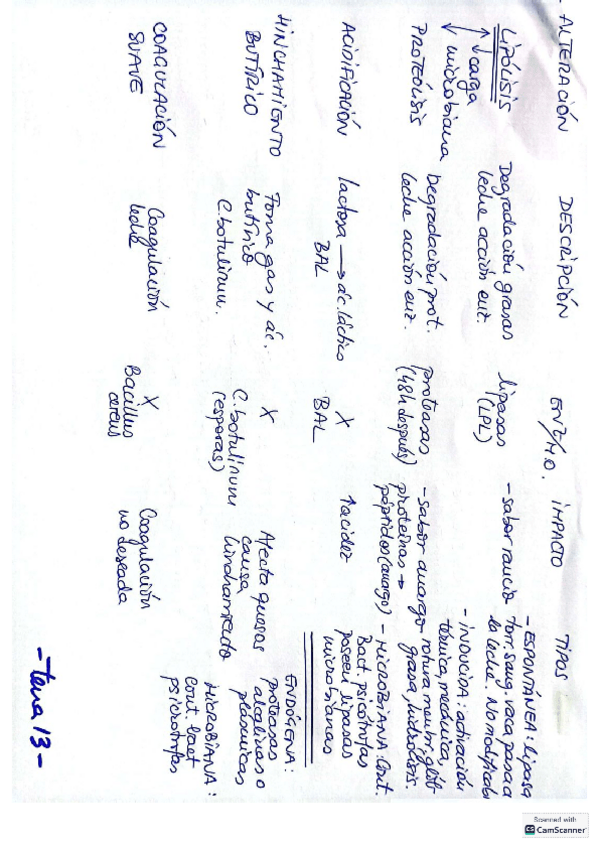 - ALTERACIÓN DESCRIPCIÓN ENZ/M.O. IMPACTO TIPOS
LIPÓLISIS
↑ carga
↓ microbiana
Degradación grasas
leche acción enz.
lipasas
(LPL)
- sabor rancio
- ESPONTÁNEA: lipasa
torr. sang. vaca pasa a
la leche. No modificab
- INDUCIDA: activación
térmica, mecánica,
rotura membr. glób
grasa, hidrólisis.
- MICROBIANA: Cont.
Bact. psicótrofas
poseen lipasas
microbianas
PROTEÓLISIS
Degradación prot.
leche acción enz.
proteasas
(48h después)
- sabor amargo
proteínas →
péptidos (amargo)
ENDÓGENA:
proteasas
alcalinas o
plasmicas
MICROBIANA:
Cont. bact
psicrotrofas
ACIDIFICACIÓN
lactosa → ác. láctico
BAL
X
BAL
↑ acidez
HINCHAMIENTO
BUTÍRICO
Forma gas y ác.
butírico
C. botulinum.
X
C. botulinum
(esporas)
Afecta quesos
causa
hinchamiento
COAGULACIÓN
SUAVE
Coagulación
leche
X
Bacillus
cereus
Coagulación
no deseada
- Tema 13 -
Scanned with
CamScanner